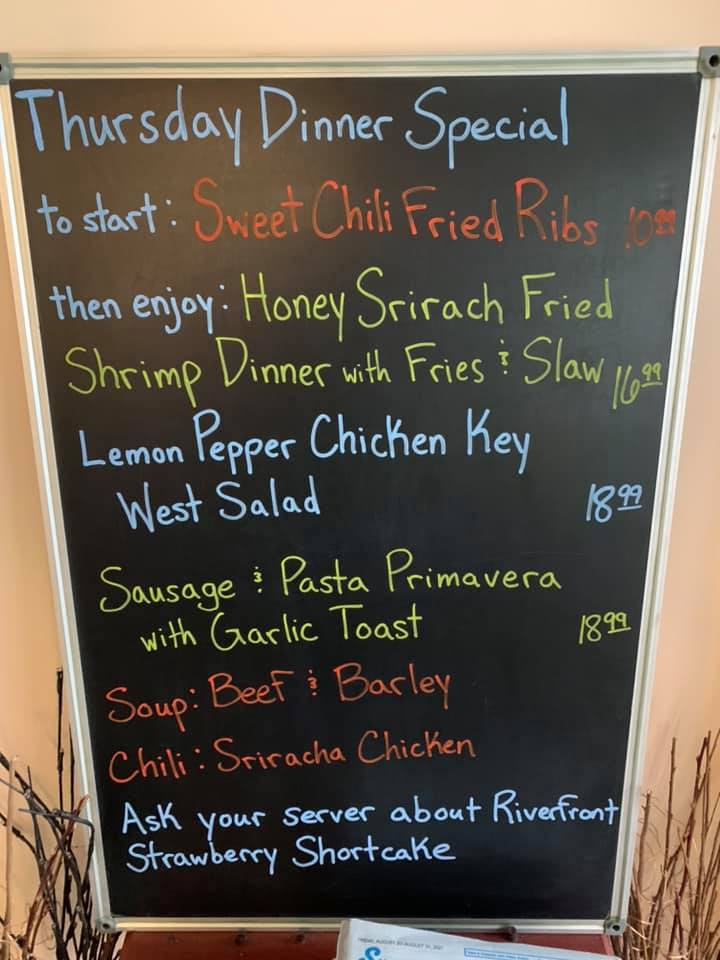 Thursday Dinner Special
to start: Sweet Chili Fried Ribs 10.99
then enjoy: Honey Srirach Fried
Shrimp Dinner with Fries & Slaw 16.99
Lemon Pepper Chicken Key
West Salad 18.99
Sausage & Pasta Primavera
with Garlic Toast 18.99
Soup: Beef & Barley
Chili: Sriracha Chicken
Ask your server about Riverfront
Strawberry Shortcake